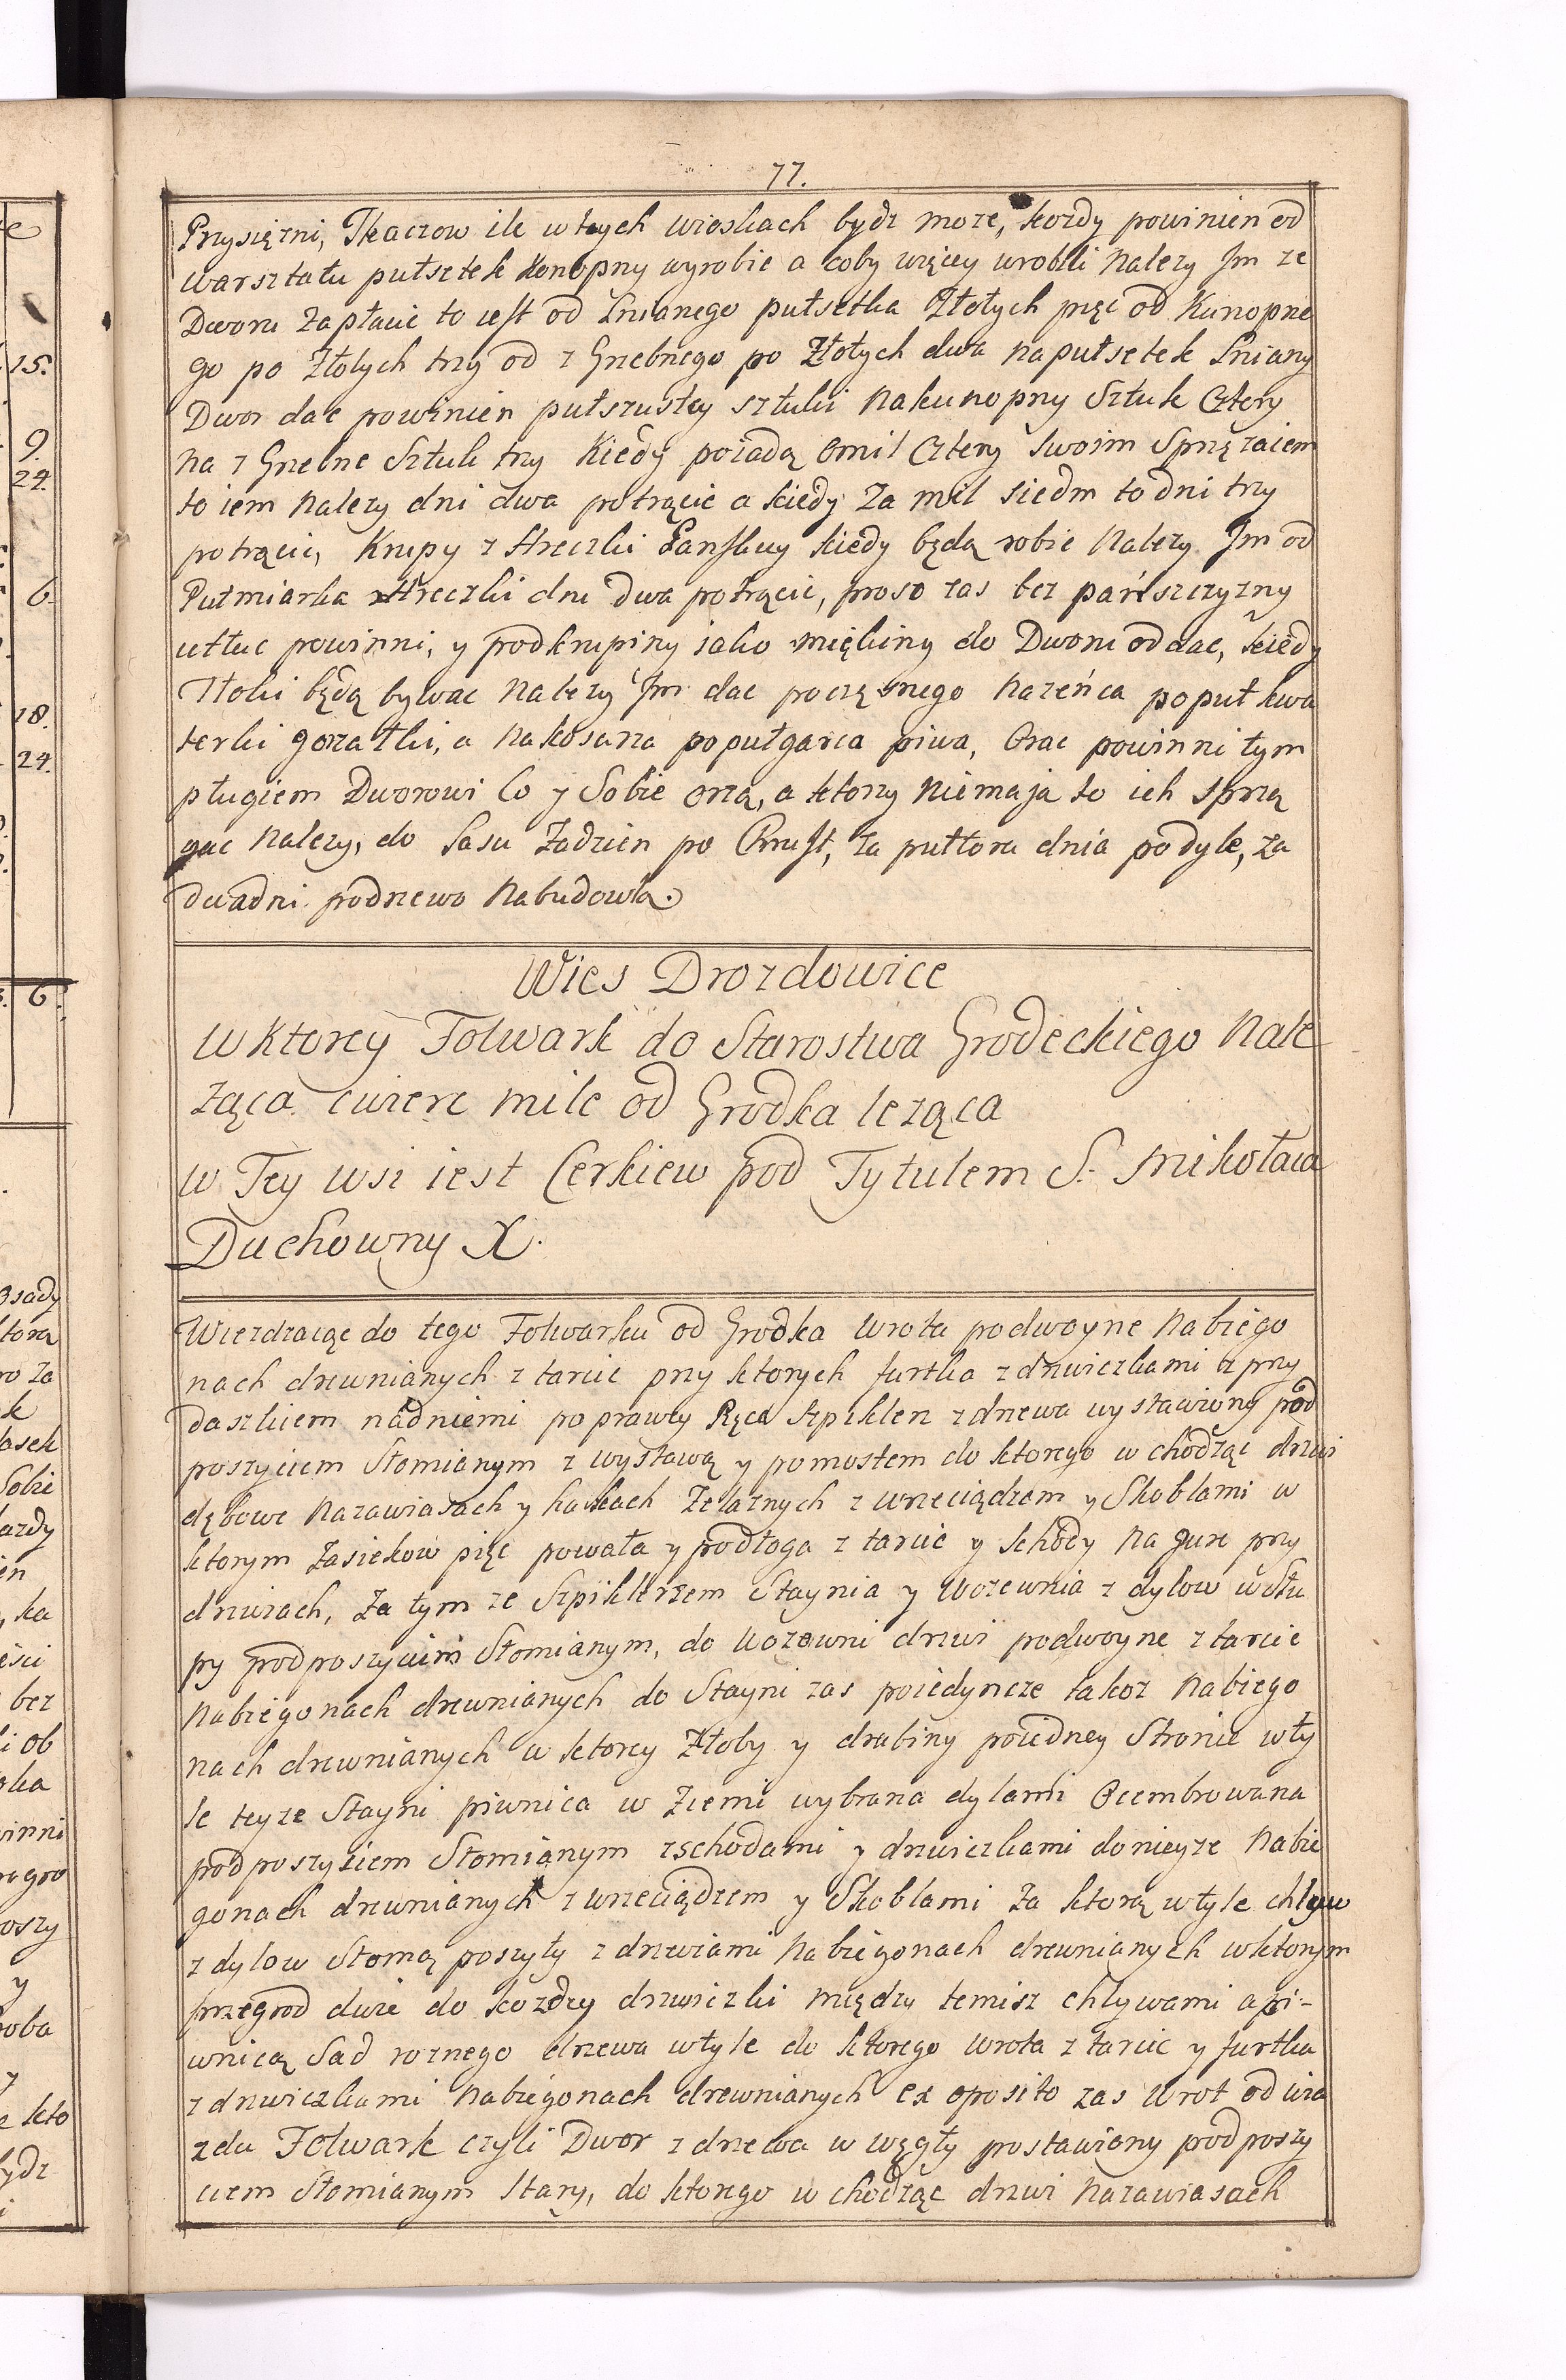 77.
Przysięzni, Tkaczow ile w tych wioskach bydz moze, kozdy powinien od
warsztatu pułsetek konopny wyrobic a coby więcey urobili Nalezy Jm ze
Dworu zapłacic to iest od Lnianego pułsetka Złotych pięc od Kunopne
go po Złotych trzy od z Grzebnego po Złotych dwa na pułsetek Lniany
Dwor dac powinien pułszustey sztuki Na kunopny Sztuk Cztery
na z Grzebne Sztuk trzy Kiedy poiadą omil Cztery Swoim Sprzęzaiem
to iem Nalezy dni dwa potrącic a kiedy za mil siedm to dni trzy
potrącic, Krupy z Hreczki Panskiey kiedy będą robic Nalezy Jm od
Pułmiarka z Hreczki dni Dwa potrącic, proso zas bez pańszczyzny
utłuc powinni, y podkrupiny iako miękiny do Dworu oddac, kiedy
Tłoki będą bywac Nalezy Jm dac poczęsnego Nazeńca po puł kwa
terki gorzałki, a Nakosarza po pułgarca piwa, Orac powinni tym
pługiem Dworowi Co y Sobie orzą, a ktorzy Niemaja to ich sprzą
gac Nalezy, do Lasu Zadzien po Chrust, za pułtora dnia po dyle, za
dwadni podrzewo Nabudowlą.
Wies Drozdowice
w Ktorey Folwark do Starostwa Grodeckiego Nale
ząca cwierc mile od Grodka leząca
w Tey wsi iest Cerkiew pod Tytulem S. Mikołaia
Duchowny X.
Wiezdzaiąc do tego Folwarku od Grodka Wrota podwoyne Nabiego
nach drewnianych z tarcic przy ktorych furtka z drzwiczkami z przy
daszkiem nadniemi po prawey Ręce Szpiklerz z drzewa wystawiony pod
poszyciem Słomianym z wystawą y pomostem do ktorego wchodząc drzwi
dębowe Nazawiasach y hakach Zelaznych z wrzeciądzem y Skoblami w
ktorym Zasiekow pięc powała y podłoga z tarcic y schody Na Gurę przy
drzwiach, Za tym ze Szpiklerzem Staynia y Wozewnia z dylow w Słu
py pod poszyciem Słomianym, do Wozowni drzwi podwoyne z tarcic
Nabiegonach drewnianych do Stayni zas poiedyncze takoz Nabiego
nach drewnianych w ktorey Złoby y drabiny poiedney Stronie w ty
le teyze Stayni piwnica w Ziemi wybrana dylami Ocembrowana
pod poszyciem Słomianym z schodami y drzwiczkami do nieyze Nabie
gonach drewnianych z wrzeciądzem y Skoblami za ktorą w tyle chlyw
z dylow Słomą poszyty z drzwiami Nabiegonach drewnianych w ktorym
przegrod dwie do kozdzy drzwiczki między temisz chlywami a pi-
wnicą Sad roznego drzewa w tyle do ktorego wrota z tarcic y furtka
z drzwiczkami Nabiegonach drewnianych ex oposito zas Wrot od wia
zdu Folwark czyli Dwor z drzewa w węgły postawiony pod poszy
ciem Słomianym Stary, do ktorego wchodząc drzwi Nazawiasach